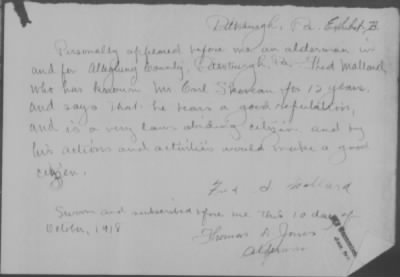 Pittsburgh, Pa. Exhibit B
Personally appeared before me an alderman in
and for Allegheny County, Pittsburgh, Pa. Fred Mallard
who has known Mr Carl for 12 years
and says that he bears a good reputation,
and is a very law abiding citizen and by
his actions and activities would make a good
citizen.
Fred Mallard
Sworn and subscribed before me this 10 day of
October, 1918
Thomas Jones
Alderman